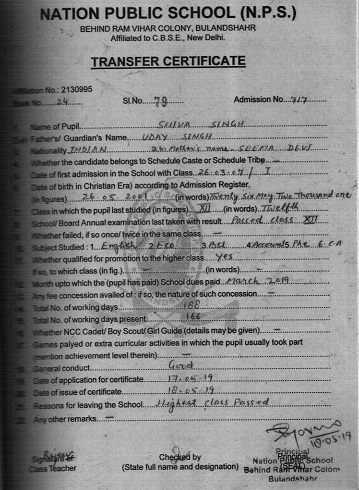 NATION PUBLIC SCHOOL (N.P.S.)
BEHIND RAM VIHAR COLONY, BULANDSHAHR
Affiliated to C.B.S.E., New Delhi.
TRANSFER CERTIFICATE
Affiliation No.: 2130995
Book No. 24 Sl.No. 79 Admission No. 717
Name of Pupil SHIVA SINGH
Father's/ Guardian's Name UDAY SINGH
Nationality INDIAN Mother's name SEEMA DEVI
Whether the candidate belongs to Schedule Caste or Schedule Tribe —
Date of first admission in the School with Class 26.03.07 / I
Date of birth in Christian Era) according to Admission Register.
(in figures) 26.05.2001 (in words) Twenty six May Two Thousand one
Class in which the pupil last studied (in figures) XII (in words) Twelfth
School/ Board Annual examination last taken with result Passed class XII
Whether failed, if so once/ twice in the same class —
Subject Studied : 1. English 2 Eco 3 Bst 4 Accounts 5 Phe 6 CA
Whether qualified for promotion to the higher class Yes
If so, to which class (in fig.) (in words) —
Month upto which the (pupil has paid) School dues paid March 2019
Any fee concession availed of : if so, the nature of such concession —
Total No. of working days 188
Total No. of working days present 166
Whether NCC Cadet/ Boy Scout/ Girl Guide (details may be given) —
Games palyed or extra curricular activities in which the pupil usually took part
(mention achievement level therein) —
General conduct Good
Date of application for certificate 17.05.19
Date of issue of certificate 18.05.19
Reasons for leaving the School Highest class Passed
Any other remarks —
18-05-19
Signature of Checked by Principal
Class Teacher (State full name and designation) (SEAL)
Nation Public School
Behind Ram Vihar Colony
Bulandshahr